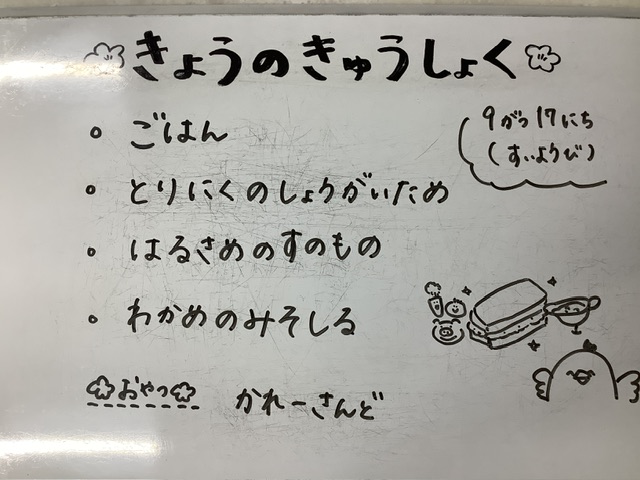 きょうのきゅうしょく
9がつ17にち
(すいようび)
。ごはん
。とりにくのしょうがいため
。はるさめのすのもの
。わかめのみそしる
おやつ かれーさんど